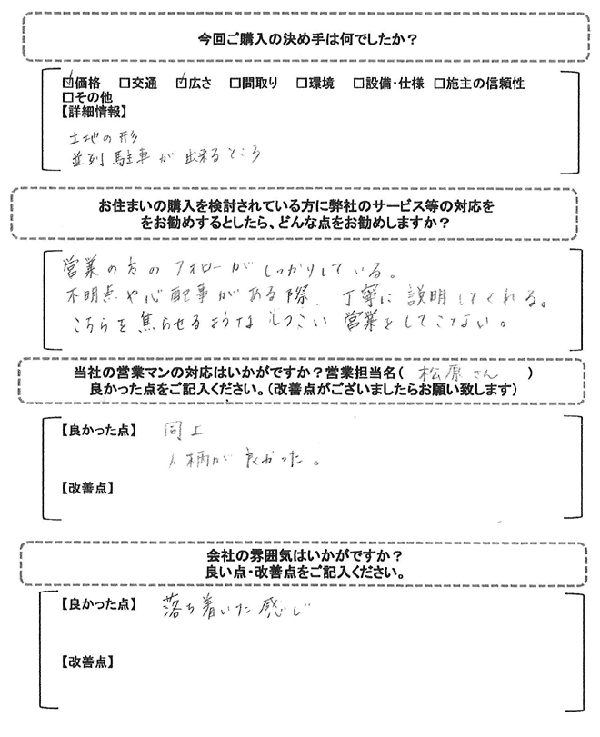 今回ご購入の決め手は何でしたか？
☑価格 □交通 ☑広さ □間取り □環境 □設備・仕様 □施主の信頼性
□その他
【詳細情報】
土地の形
並列駐車が出来るところ
お住まいの購入を検討されている方に弊社のサービス等の対応を
をお勧めするとしたら、どんな点をお勧めしますか？
営業の方のフォローがしっかりしている。
不明点や心配事がある際、丁寧に説明してくれる。
こちらを焦らせるようなしつこい営業をしてこない。
当社の営業マンの対応はいかがですか？営業担当名（ 松原さん ）
良かった点をご記入ください。（改善点がございましたらお願い致します）
【良かった点】 同上
人柄が良かった。
【改善点】
会社の雰囲気はいかがですか？
良い点・改善点をご記入ください。
【良かった点】 落ち着いた感じ
【改善点】